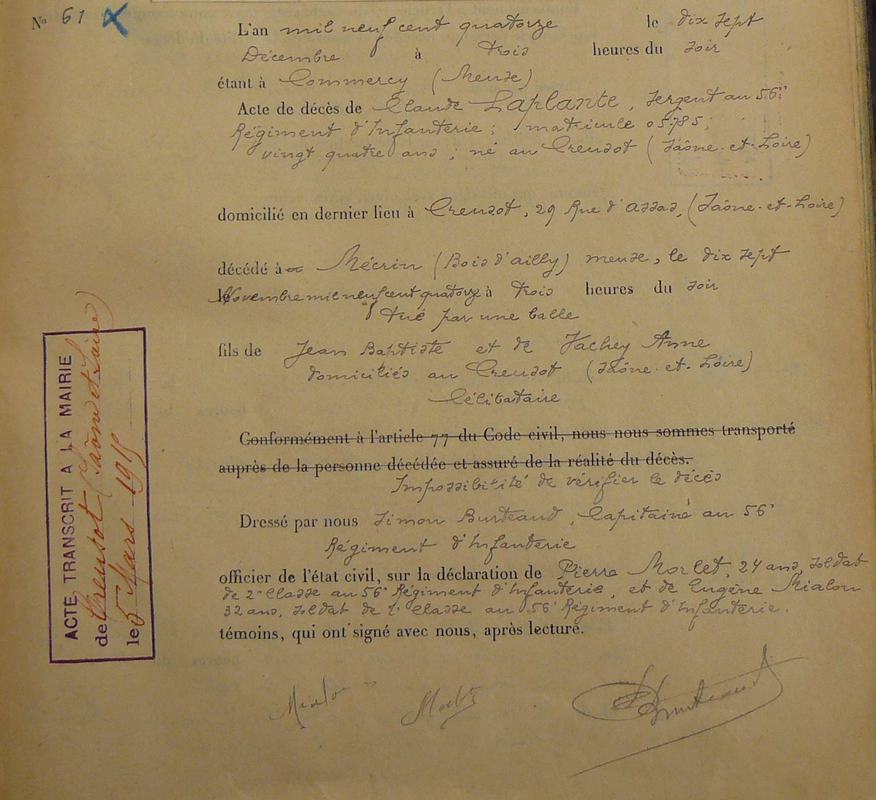 N° 61
L'an mil neuf cent quatorze le dix sept
Décembre à trois heures du soir
étant à Commercy (Meuse)
Acte de décès de Claude Laplante, Sergent au 56e
Régiment d'Infanterie ; matricule 05785,
vingt quatre ans ; né au Creusot (Saône-et-Loire)
domicilié en dernier lieu à Creusot, 29 Rue d'assas, (Saône-et-Loire)
décédé à Mécrin (Bois d'ailly) meuse, le dix sept
le Novembre mil neuf cent quatorze à trois heures du soir
tué par une balle
fils de Jean Baptiste et de Vachey Anne
domiciliés au Creusot (Saône-et-Loire)
Célibataire
Conformément à l'article 77 du Code civil, nous nous sommes transporté
auprès de la personne décédée et assuré de la réalité du décès.
Impossibilité de vérifier le décès
Dressé par nous Simon Burteaud, Capitaine au 56e
Régiment d'Infanterie
officier de l'état civil, sur la déclaration de Pierre Morlet, 24 ans, soldat
de 2e Classe au 56e Régiment d'Infanterie, et de Eugène Mialon
32 ans, soldat de 1e Classe au 56e Régiment d'Infanterie.
témoins, qui ont signé avec nous, après lecture.
Mialon Morlet Burteaud
ACTE TRANSCRIT A LA MAIRIE
de Creusot (Saône et Loire)
le 5 Mars 1915